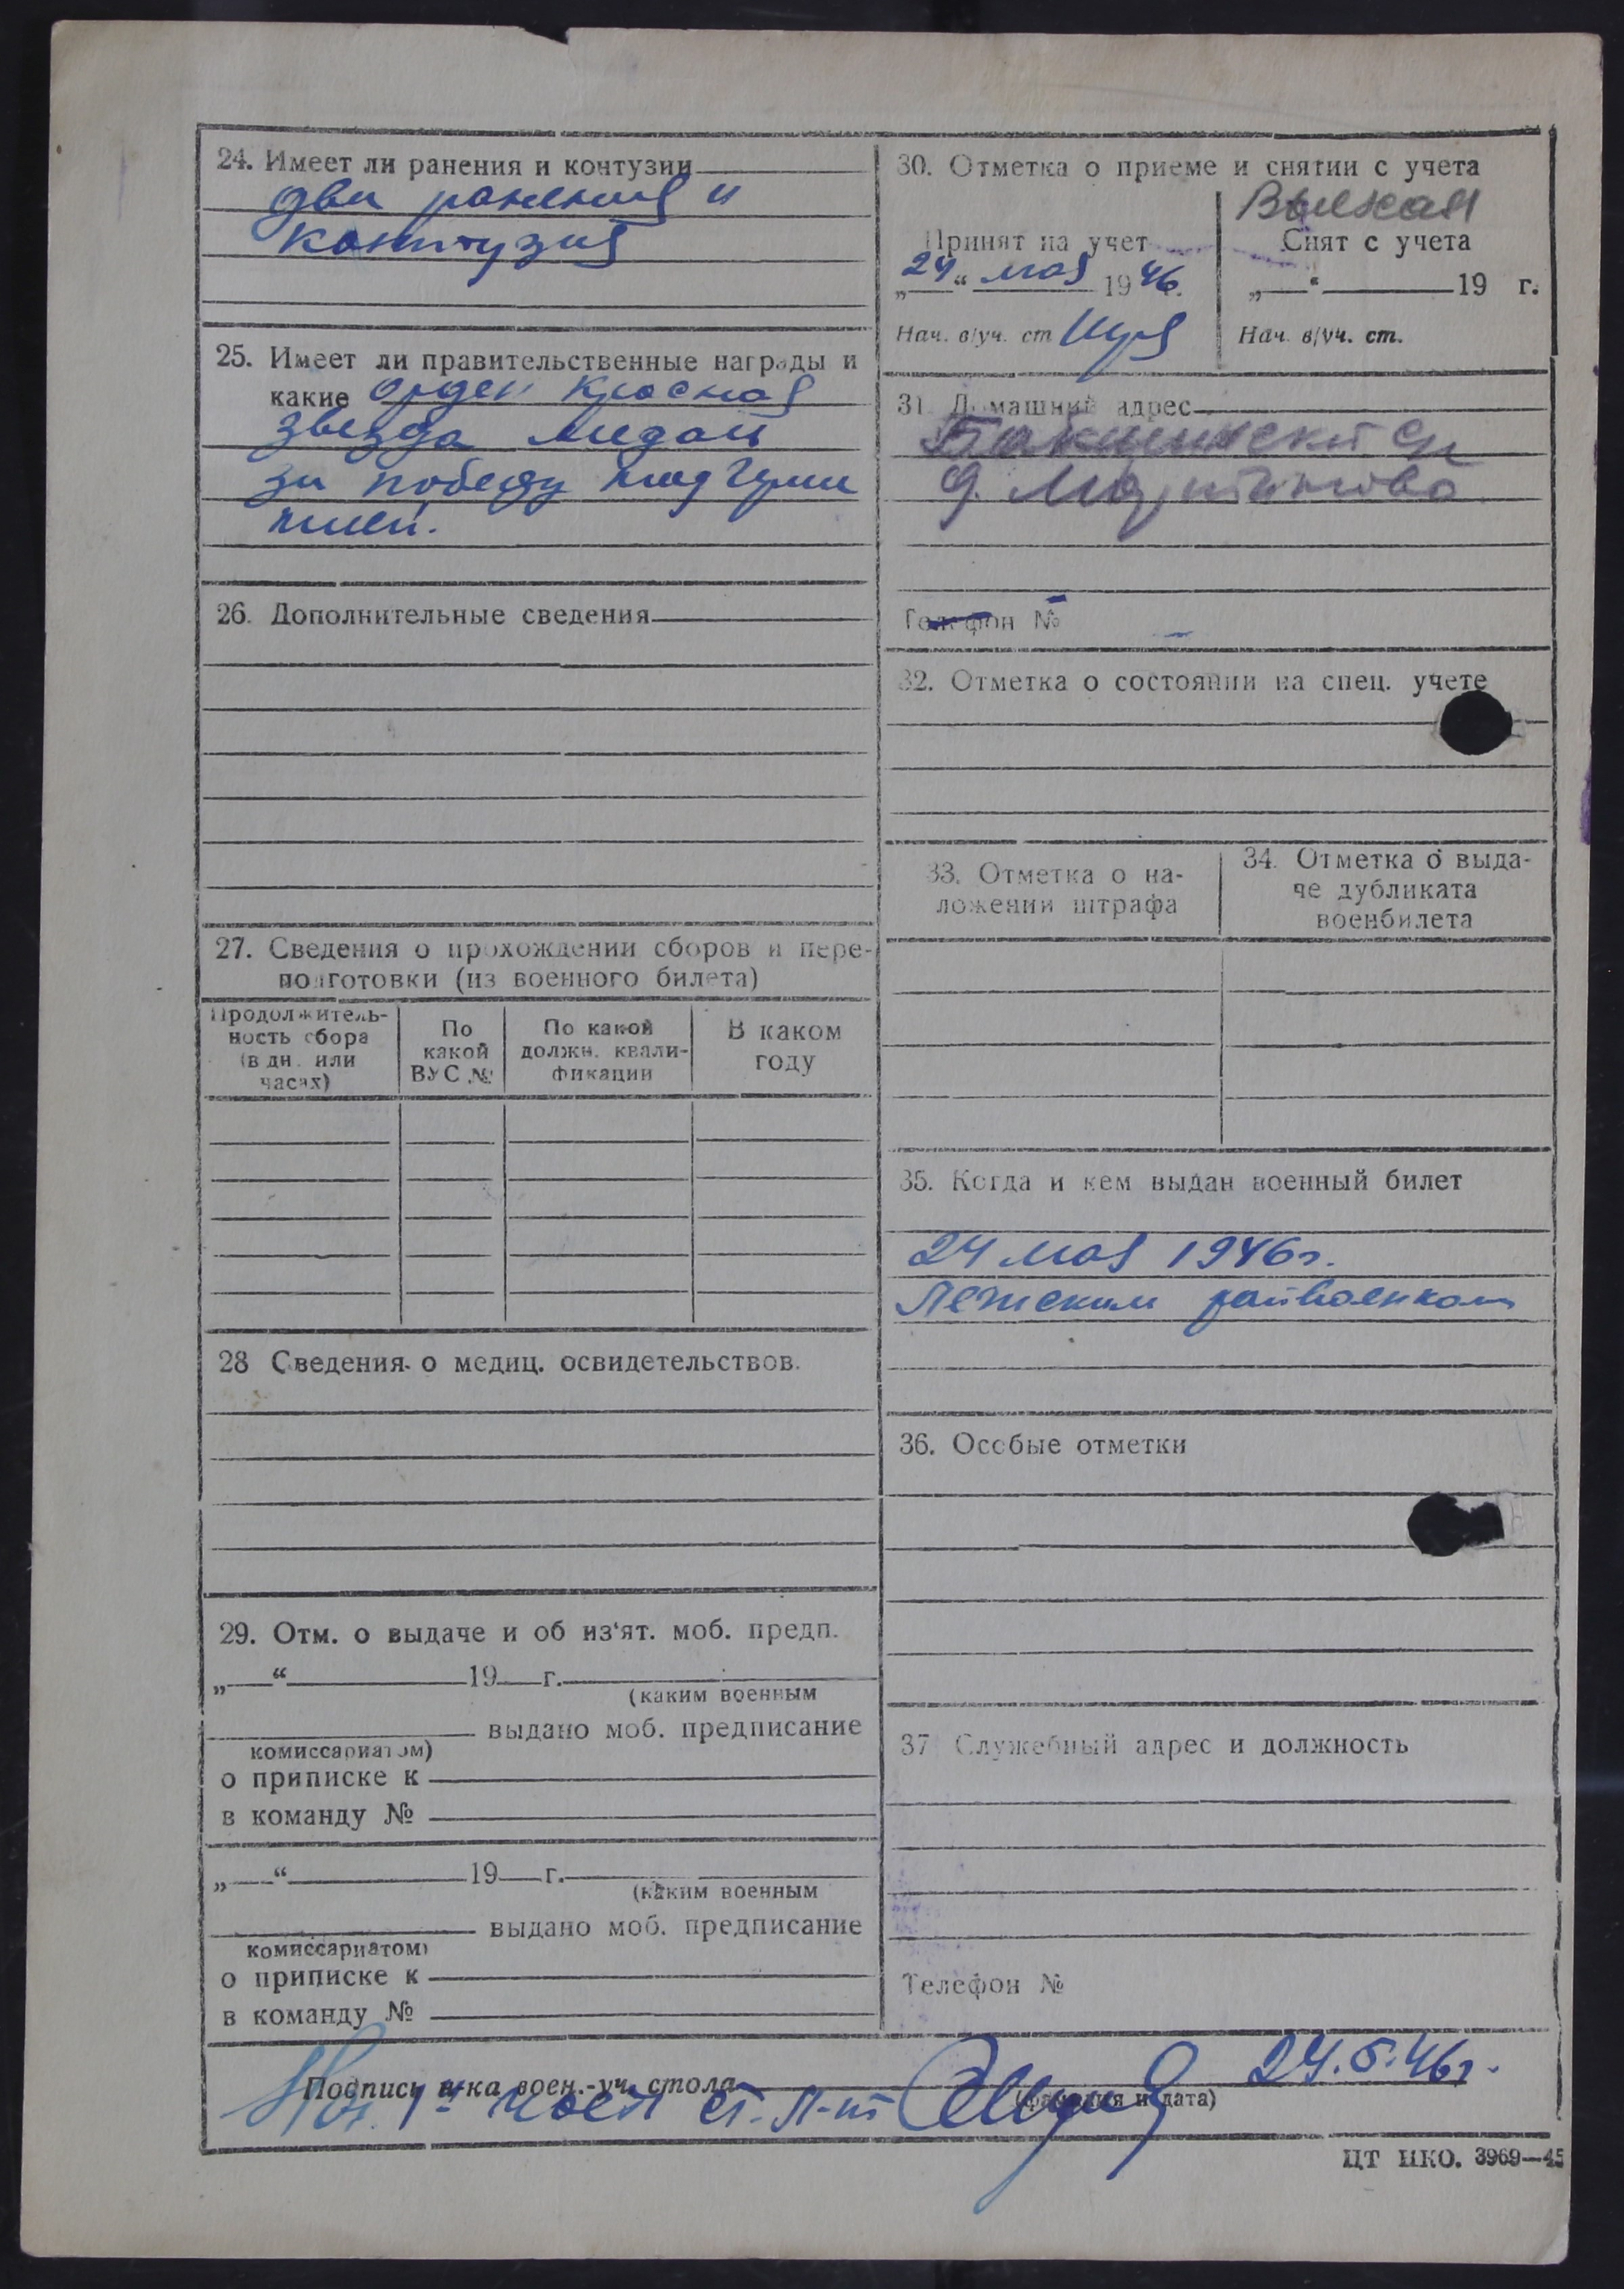 24. Имеет ли ранения и контузии
два ранения и
контузия
25. Имеет ли правительственные награды и
какие орден Красная
звезда медаль
за победу над Герма
нией.
26. Дополнительные сведения
27. Сведения о прохождении сборов и пере-
подготовки (из военного билета)
Продолжитель-
ность сбора
(в дн. или
часах)
По
какой
ВУС №
По какой
должн. квали-
фикации
В каком
году
28 Сведения о медиц. освидетельствов.
29. Отм. о выдаче и об из'ят. моб. предп.
„ “ 19 г.
(каким военным
выдано моб. предписание
комиссариатом)
о приписке к
в команду №
„ “ 19 г.
(каким военным
выдано моб. предписание
комиссариатом)
о приписке к
в команду №
30. Отметка о приеме и снятии с учета
Принят на учет
„24“ мая 1946.
Нач. в/уч. ст
Выехал
Снят с учета
„ “ 19 г.
Нач. в/уч. ст.
31. Домашний адрес
д.
Телефон №
32. Отметка о состоянии на спец. учете
33. Отметка о на-
ложении штрафа
34. Отметка о выда-
че дубликата
военбилета
35. Когда и кем выдан военный билет
24 мая 1946г.
Лежским райвоенком
36. Особые отметки
37. Служебный адрес и должность
Телефон №
24.5.46г.
Подпись н-ка воен.-уч. стола
(фамилия и дата)
Нач. 1й части ст. л-нт
ЦТ НКО. 3969—45